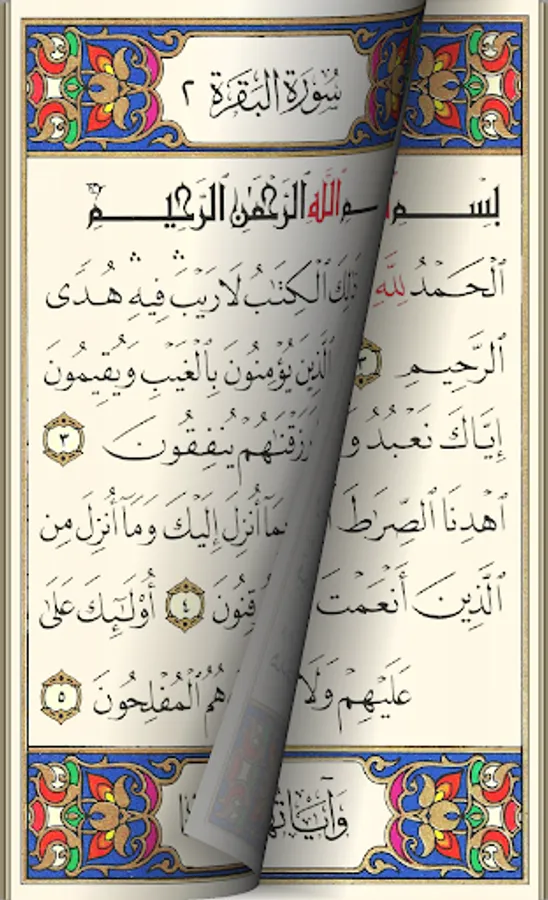 سُورَةُ البَقَرَةِ ٢
بِسْمِ ٱللَّهِ ٱلرَّحْمَٰنِ ٱلرَّحِيمِ
ٱلْحَمْدُ لِلَّهِ ذَٰلِكَ ٱلْكِتَٰبُ لَا رَيْبَ فِيهِ هُدًى
ٱلرَّحِيمِ ٱلَّذِينَ يُؤْمِنُونَ بِٱلْغَيْبِ وَيُقِيمُونَ
إِيَّاكَ نَعْبُدُ وَ رَزَقْنَٰهُمْ يُنفِقُونَ ٣
ٱهْدِنَا ٱلصِّرَٰطَ بِمَآ أُنزِلَ إِلَيْكَ وَمَآ أُنزِلَ مِن
ٱلَّذِينَ أَنْعَمْتَ قِنُونَ ٤ أُو۟لَٰٓئِكَ عَلَىٰ
عَلَيْهِمْ وَلَا هُمُ ٱلْمُفْلِحُونَ ٥